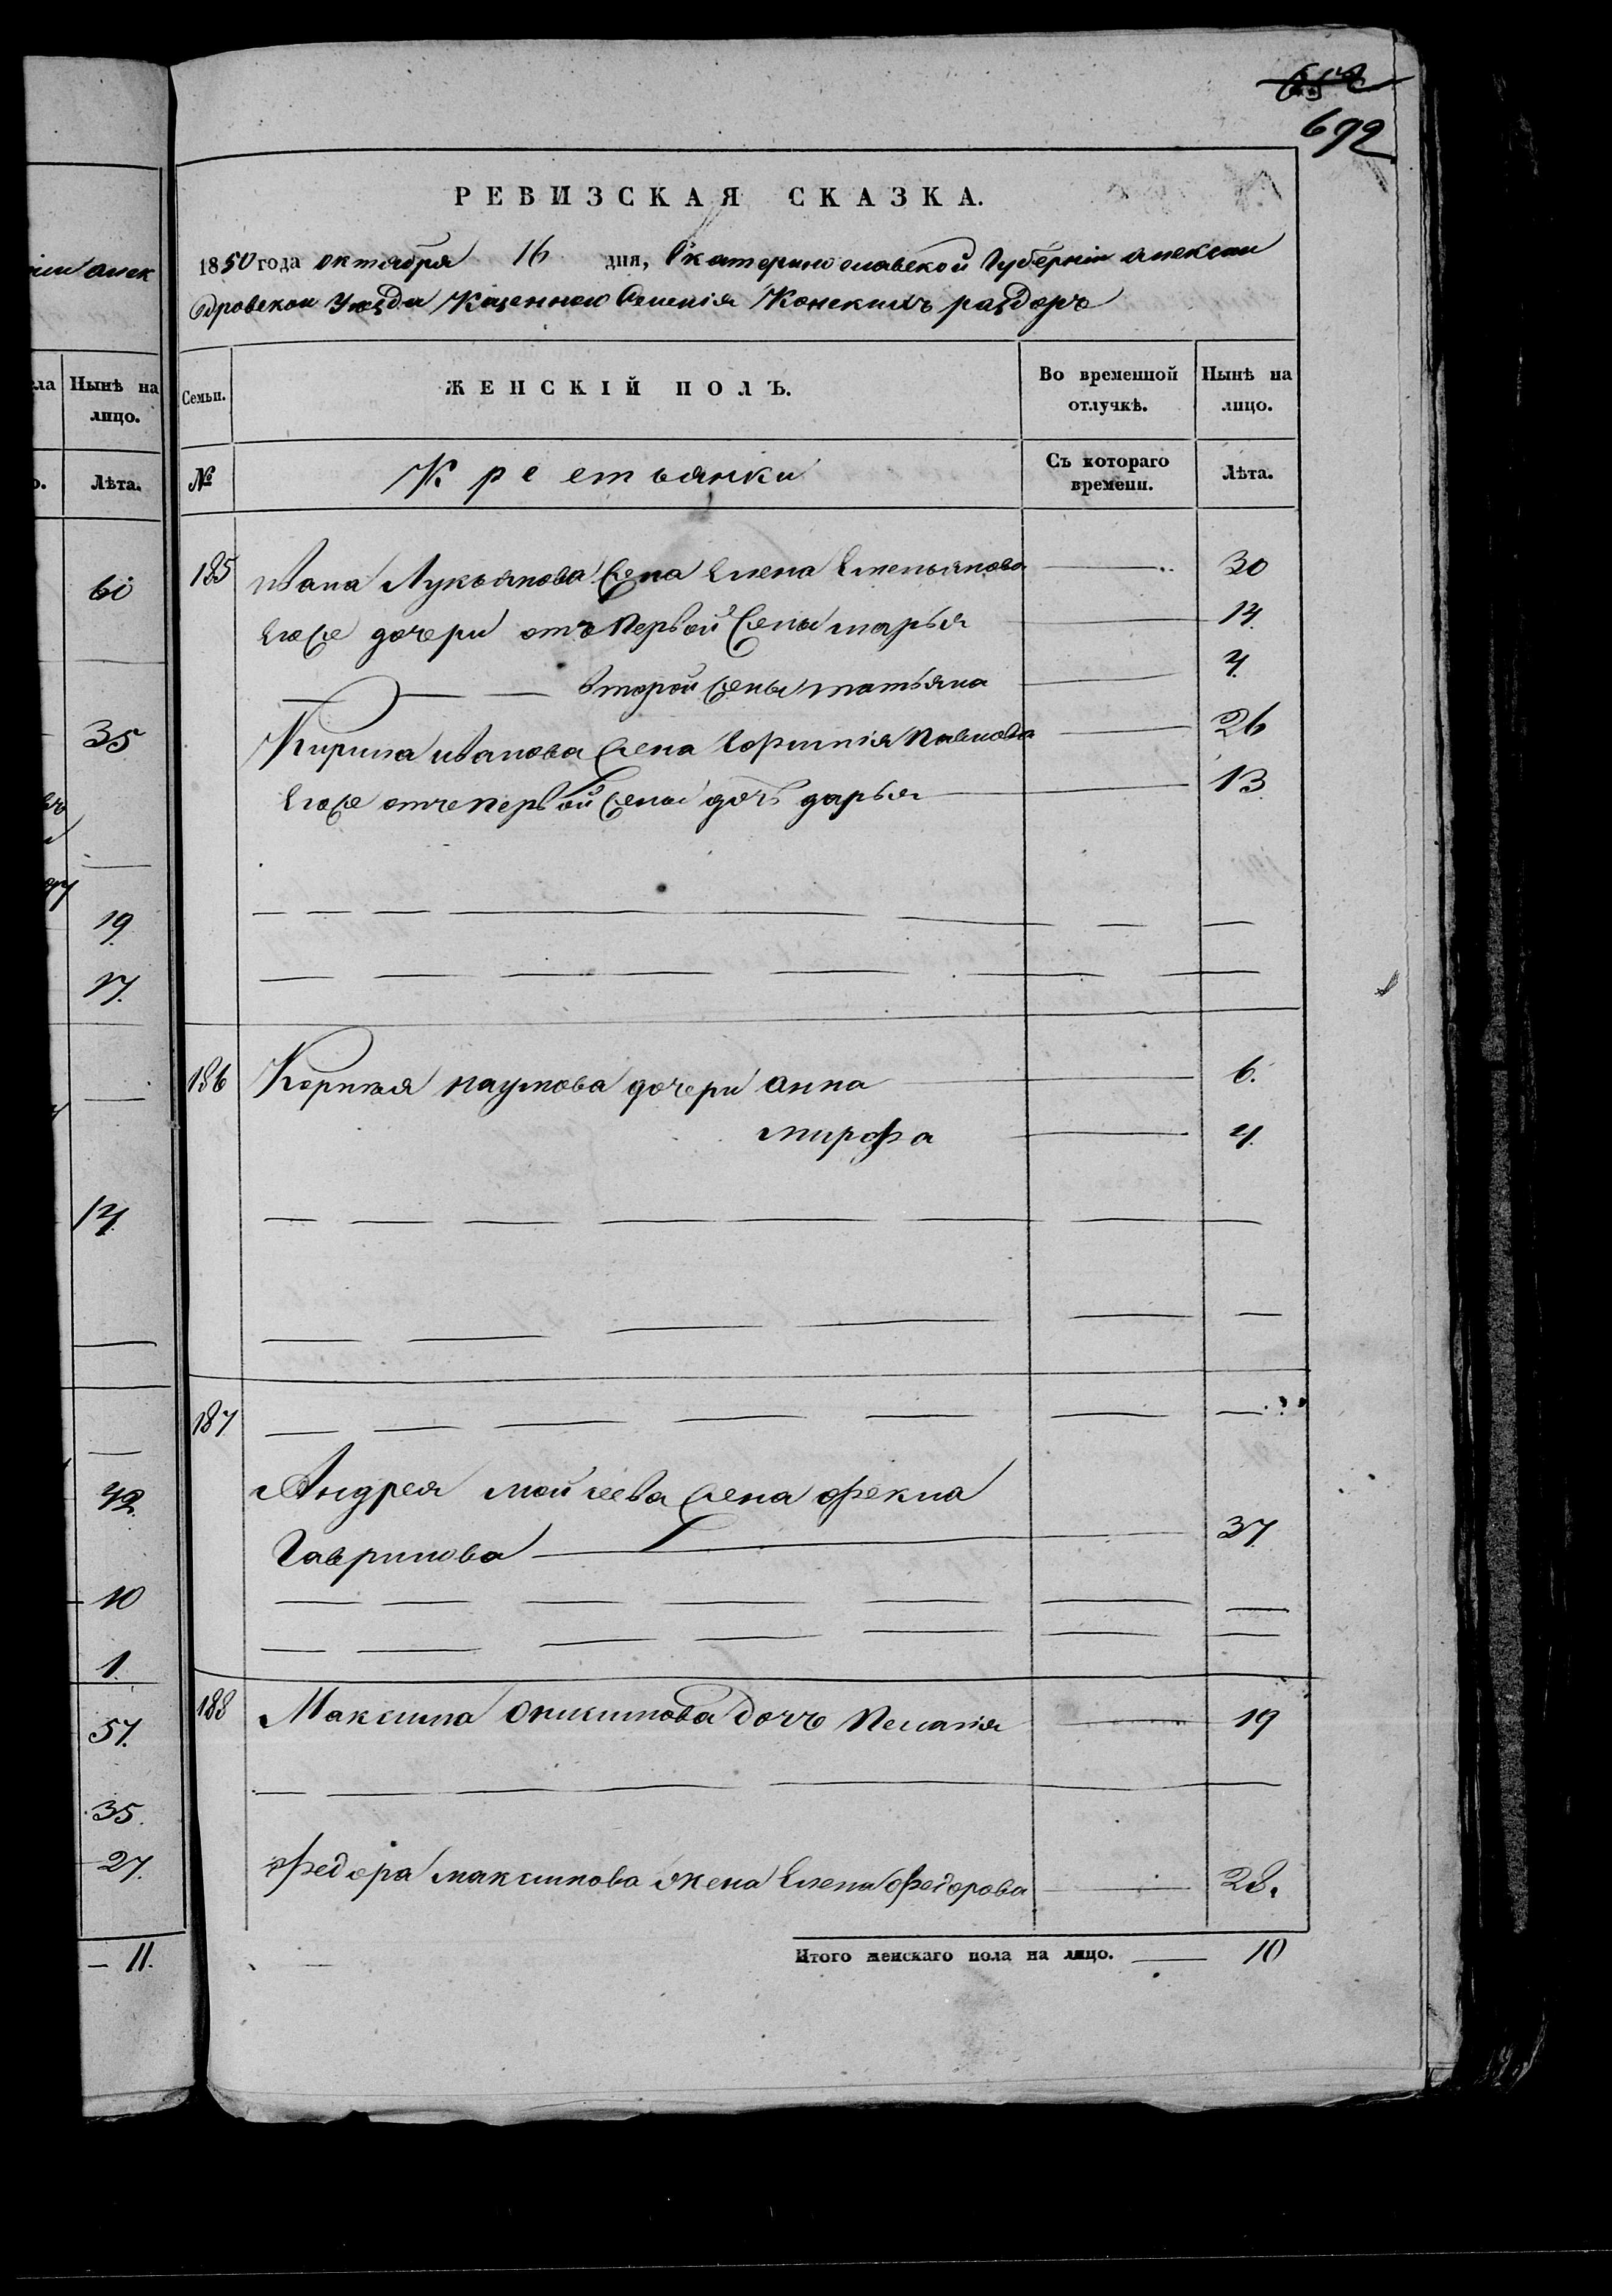 692
РЕВИЗСКАЯ СКАЗКА.
1850 года октября 16 дня, Екатеринославской Губерніи Алексан
дровскои Уезда Казеннаго Селенія Конскихъ раздоръ
іи Алек
Семьи.
ЖЕНСКІЙ ПОЛЪ.
Во временной отлучкѣ.
Нынѣ на лицо.
Нынѣ на лицо.
№
Крестьянки
Съ котораго времени.
Лѣта.
Лѣта.
185 Ивана Лукьянова жена Елена Емельянова 30
Егоже дочери отъ первой жены марья 14
второй жены татьяна 4
Кирила иванова жена Ефимія Павлова 26
Егоже отъ первой жены дочь дарья 13
186 наумова дочери анна 6.
марфа 4
187
Андрея мойсеева жена фекла
Гаврилова 37
188 Максима дочь Пелагія 19
Федора максимова жена Елена Федорова 28.
Итого женскаго пола на лицо. 10
60
35
19
17.
14
42
10
1.
57.
35.
27.
11.